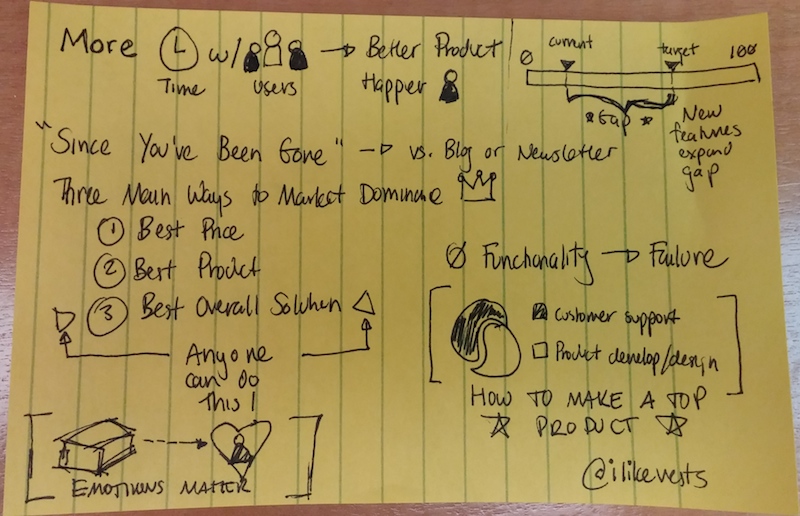 More w/ → Better Product
Time users Happier
0 current target 100
*Gap*
New
features
expand
gap
"Since You've Been Gone" → vs. Blog or Newsletter
Three Main Ways to Market Dominance
1 Best Price
2 Best Product
3 Best Overall Solution
Anyone
can do
this!
Ø Functionality → Failure
Customer support
Product develop/design
HOW TO MAKE A TOP
☆ PRODUCT ☆
EMOTIONS MATTER
@ilikevests